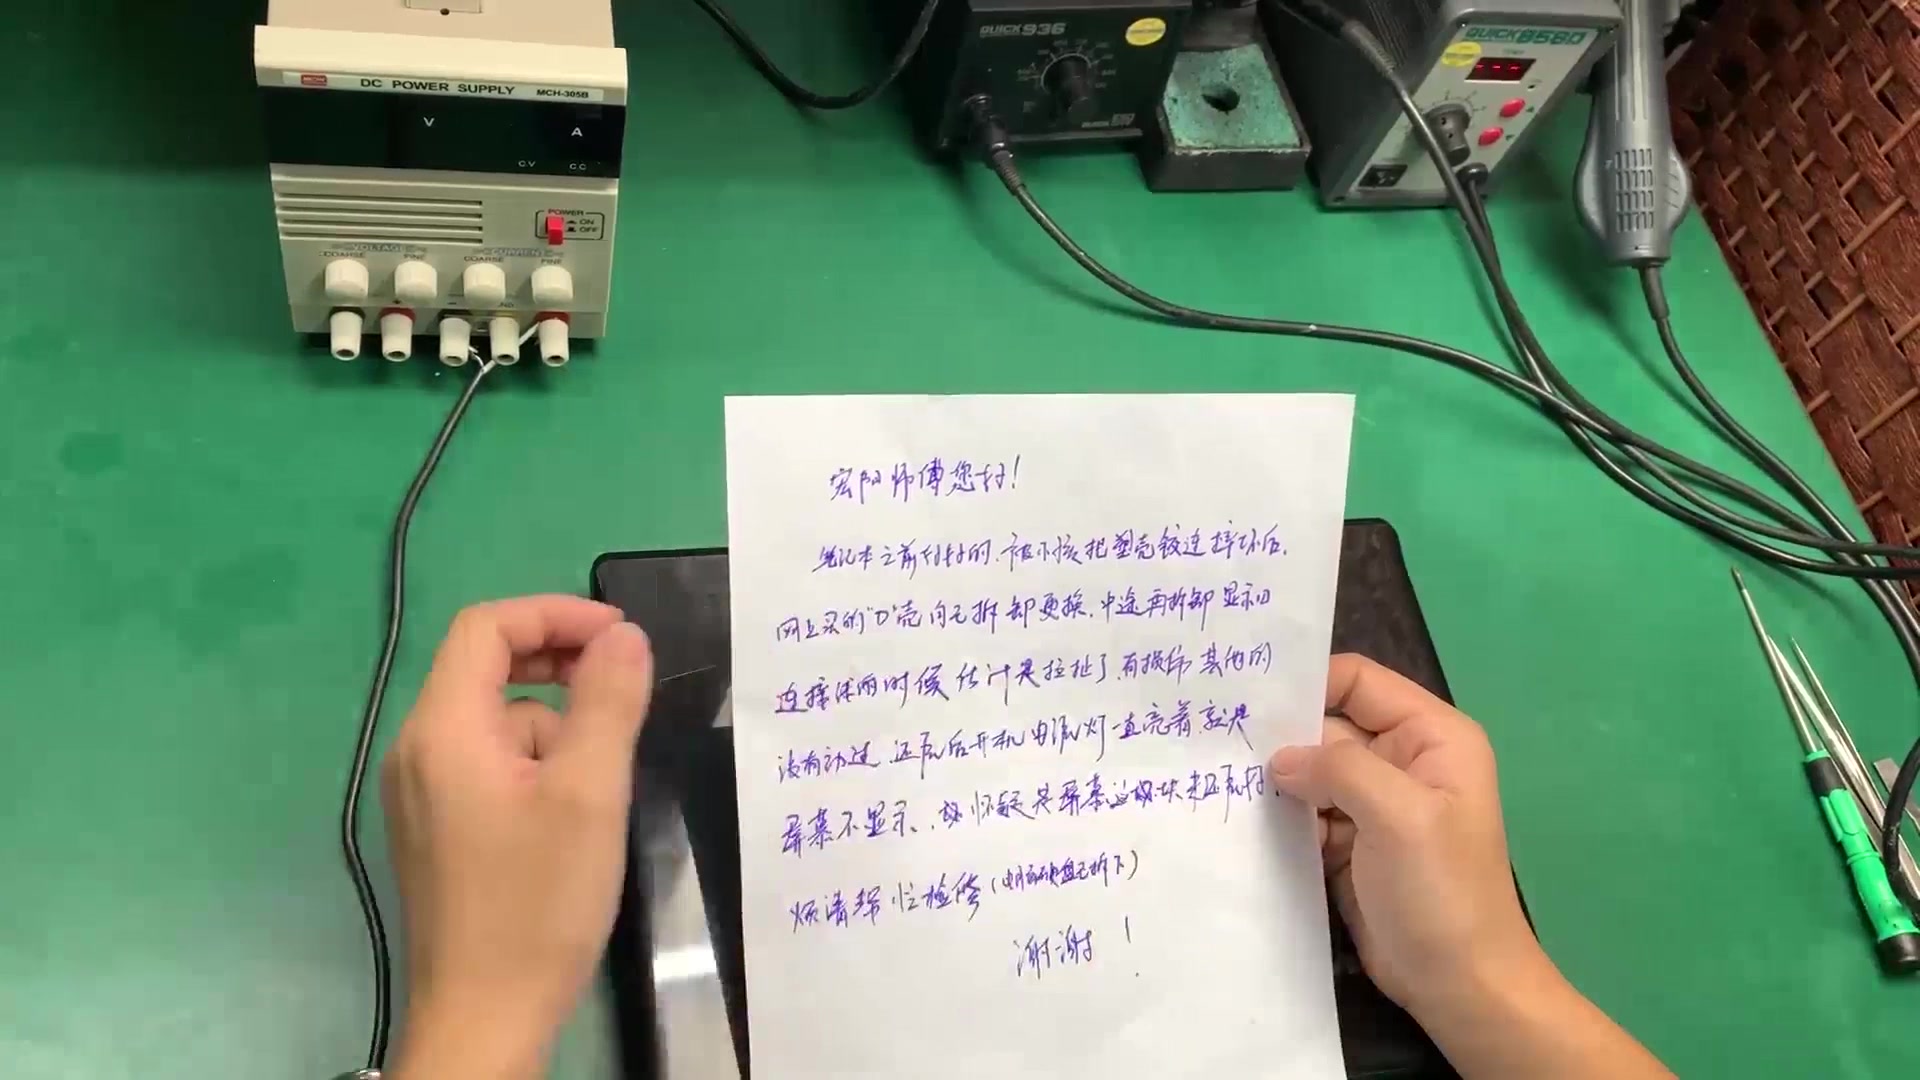 QUICK936
QUICK858D
DC POWER SUPPLY MCH-305B
V
A
CV CC
POWER
ON
OFF
VOLTAGE CURRENT
COARSE FINE COARSE FINE
宏阳师傅您好!
笔记本之前好好的,被小孩把塑壳铰连摔坏后,
网上买的"D"壳自己拆卸更换,中途再拆卸显示口
连接线的时候估计是拉扯了,有损伤其他的
没有动过,还原后开机电源灯一直亮着,就是
屏幕不显示,故怀疑是屏幕 未还原好,
烦请帮忙检修(电脑硬盘已拆下)
谢谢!